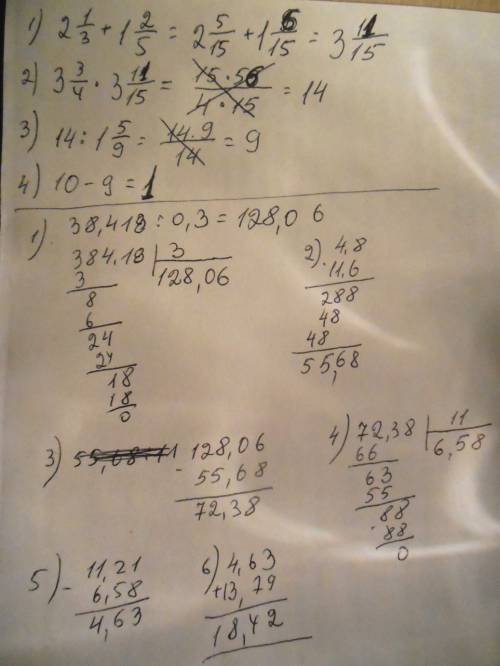 1) 2 1/3 + 1 2/5 = 2 5/15 + 1 6/15 = 3 11/15
2) 3 3/4 · 3 11/15 = 15·56/4·15 = 14
3) 14 : 1 5/9 = 14·9/14 = 9
4) 10 - 9 = 1
1) 38,418 : 0,3 = 128,06
384.18 | 3
128,06
3
8
6
24
24
18
18
0
2) 4,8
· 11,6
288
48
48
55,68
3) 128,06
- 55,68
72,38
4) 72,38 | 11
6,58
66
63
55
88
- 88
0
5) - 11,21
6,58
4,63
6) 4,63
+ 13,79
18,42